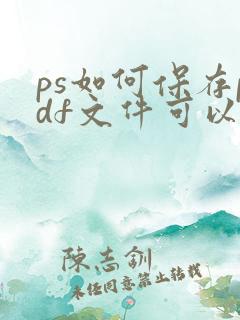 ps如何保存p
df文件可以
陈志钏
未经同意禁止转载